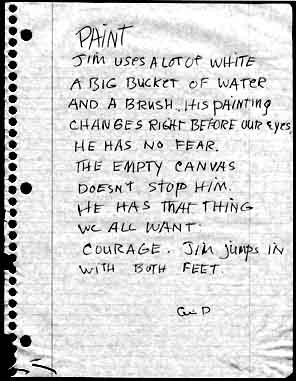 PAINT
JIM USES A LOT OF WHITE
A BIG BUCKET OF WATER
AND A BRUSH. HIS PAINTING
CHANGES RIGHT BEFORE OUR EYES.
HE HAS NO FEAR.
THE EMPTY CANVAS
DOESN'T STOP HIM.
HE HAS THAT THING
WE ALL WANT.
COURAGE. JIM JUMPS IN
WITH BOTH FEET.